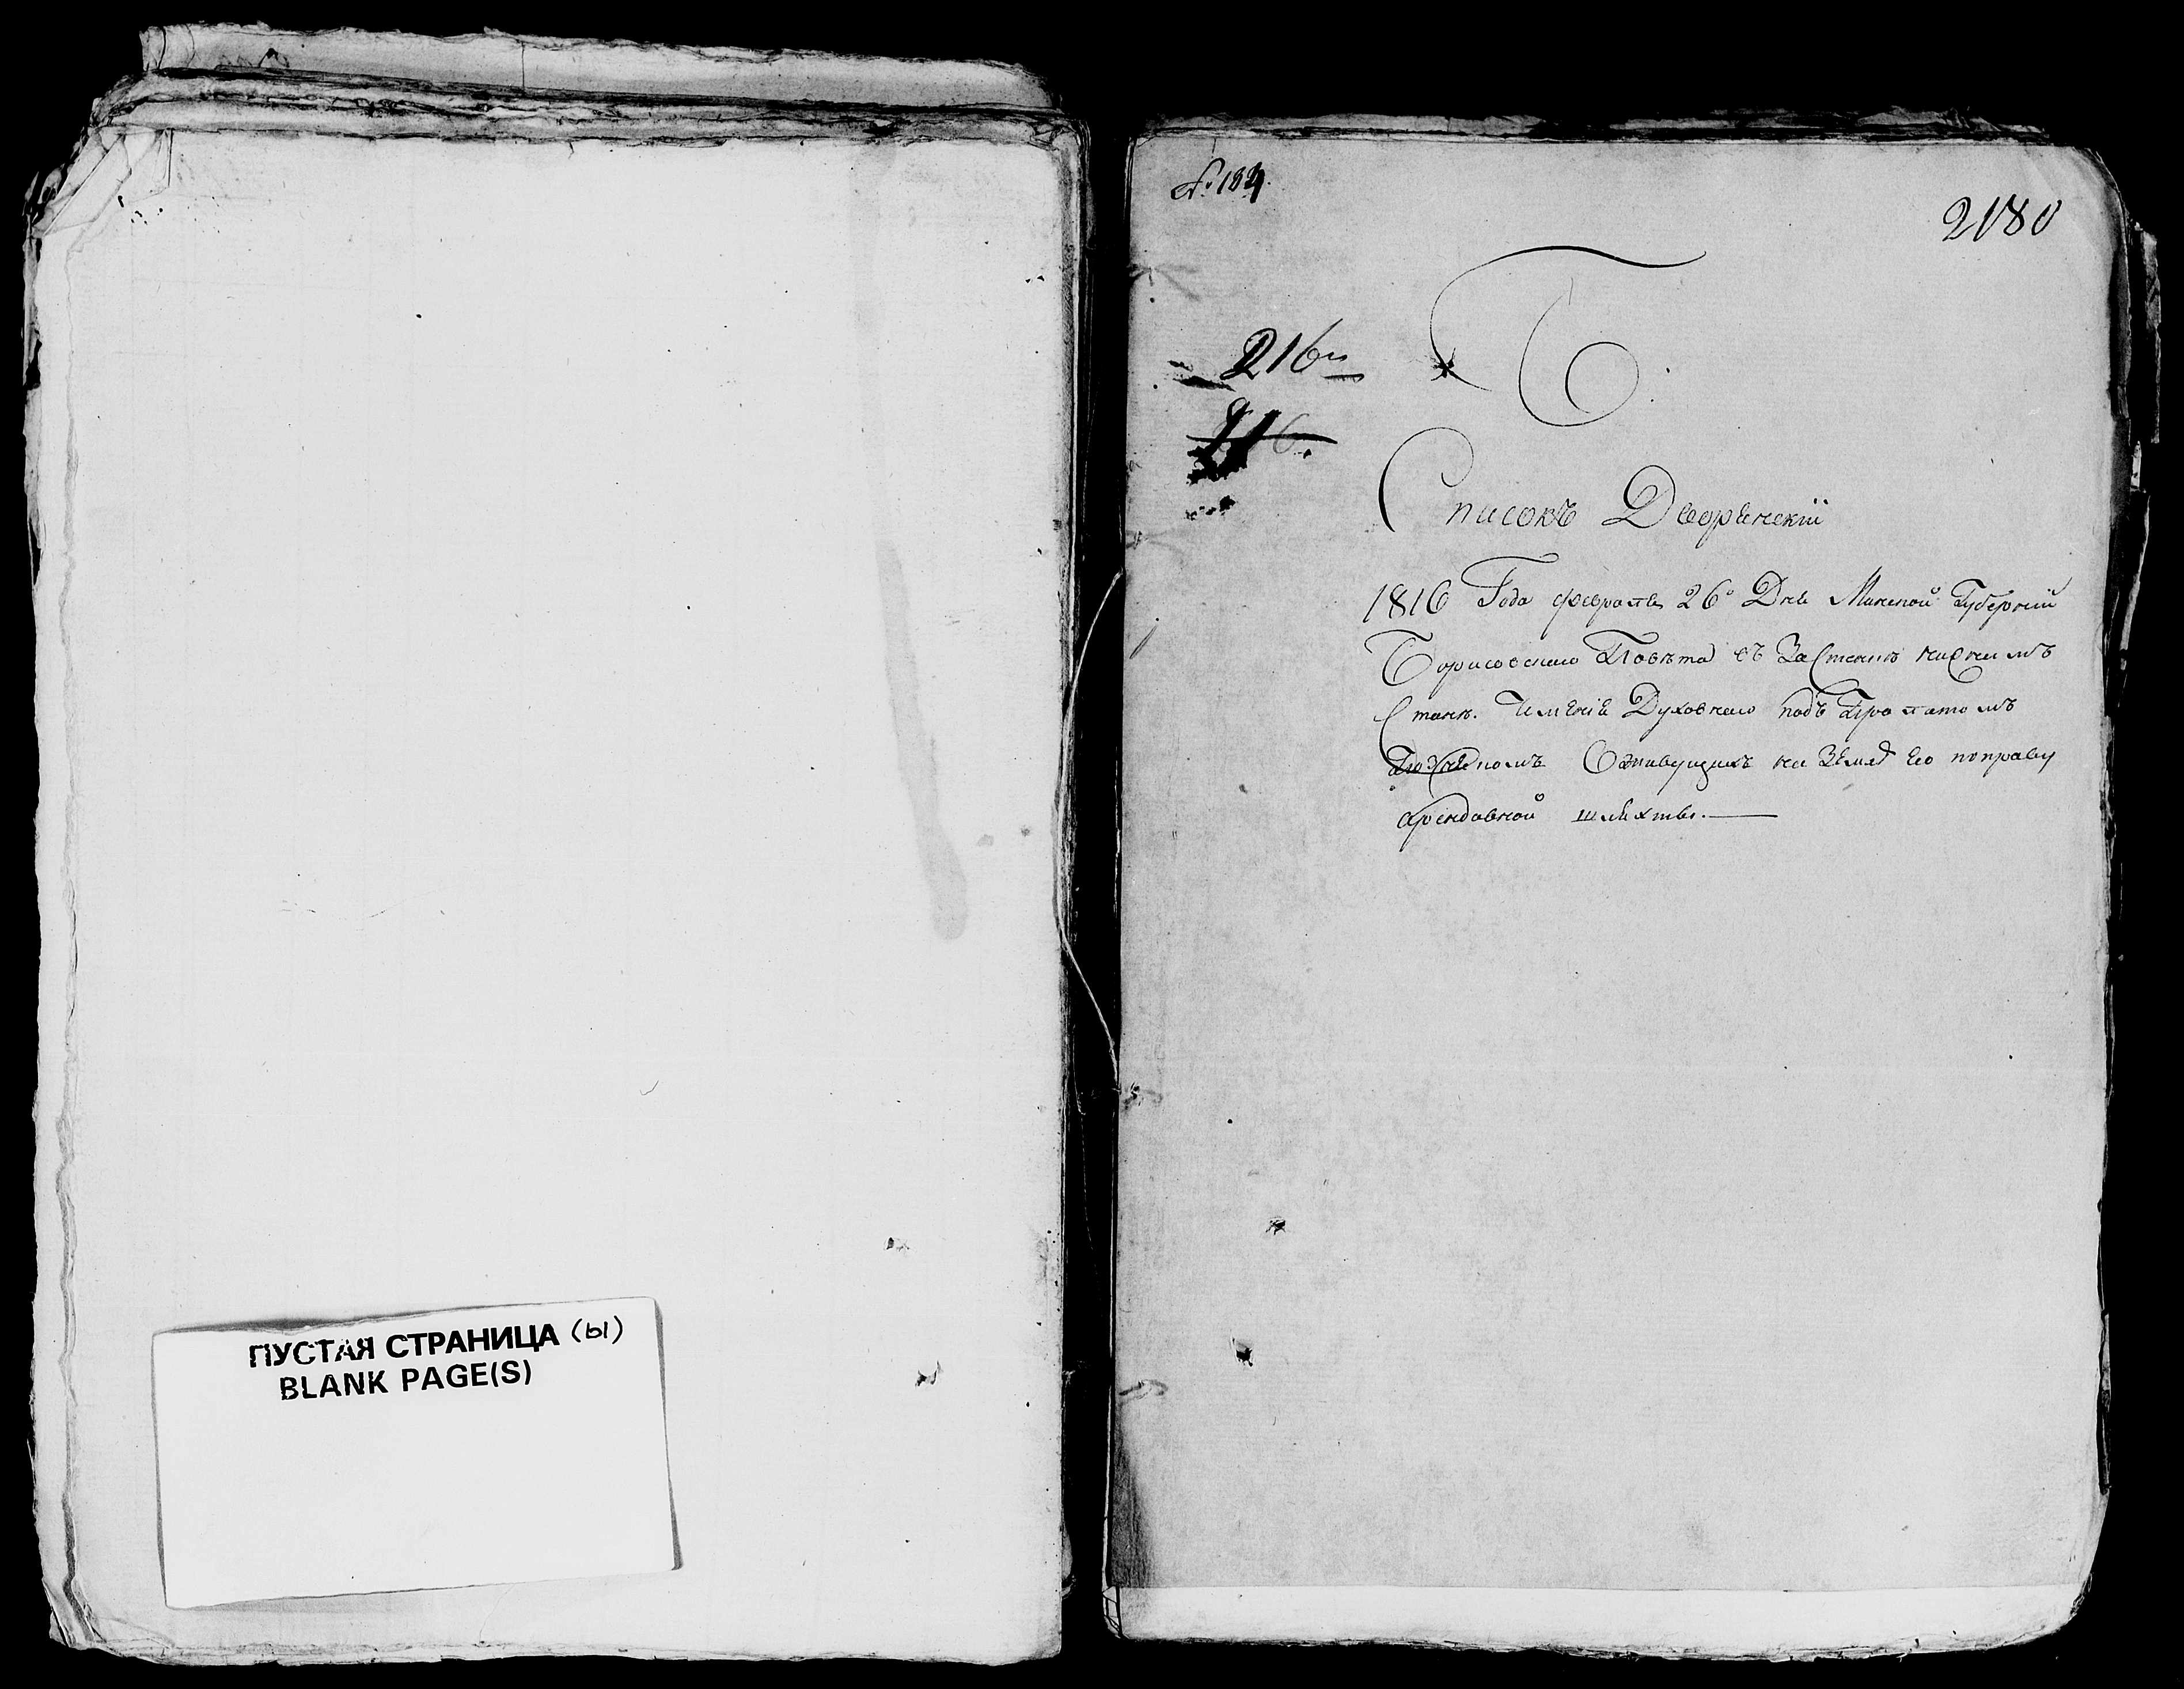 ПУСТАЯ СТРАНИЦА (ы)
BLANK PAGE(S)
№ 184.
2180
216
Б.
Списокъ Дворенскій
1816 Года февраля 26º Дня Минской Губерніи
Борисовскаго Повѣта въ Застенкѣ
Имѣніе Духовнаго подъ
на Землѣ Его поправу
Арендавной шляхты.